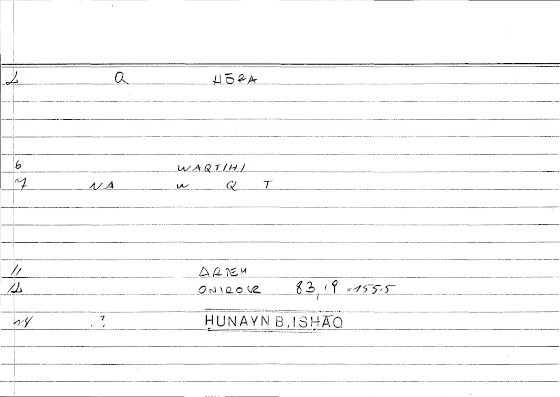 2 Q HŌRA
6 WAQTIHI
7 NA W Q T
11 ARTEM
12 ONIROCR 83,19 = 155.5
14 ? HUNAYN B. ISHAQ